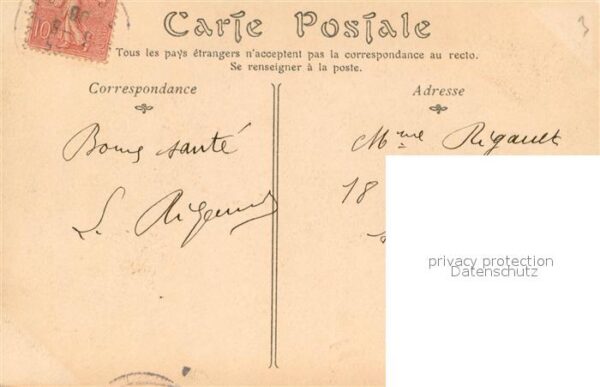 Carte Postale
Tous les pays étrangers n'acceptent pas la correspondance au recto.
Se renseigner à la poste.
Correspondance
Adresse
Bonne santé
L. Rigault
Mme Rigault
18
privacy protection
Datenschutz
10
3